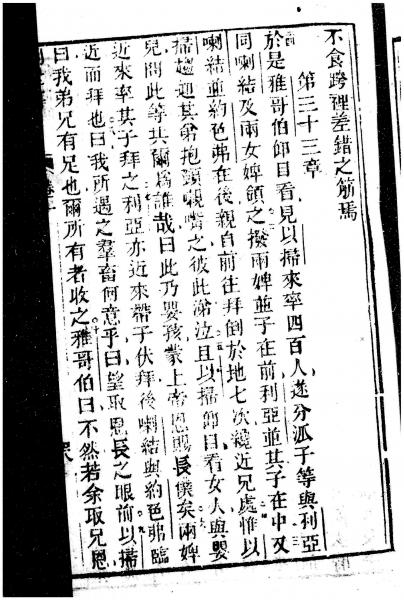 不食跨裡差錯之筋焉
第三十三章
於是雅哥伯仰目看見以掃來率四百人遂分派子等與利亞
同喇結及兩女婢領之撥兩婢並子在前利亞並其子在中又
喇結並約色弗在後親自前往拜倒於地七次纔近兄處惟以
掃趨迎其弟抱頸親嘴之彼此涕泣且以掃仰目看女人與嬰
兒問此等共爾為誰哉曰此乃嬰孩蒙上帝恩賜長僕矣兩婢
近來率其子拜之利亞亦近來帶子伏拜後喇結與約色弗臨
近而拜也曰我所遇之羣畜何意乎曰望取恩長之眼前以掃
曰我弟兄有足也爾所有者收之雅哥伯曰不然若余取兄恩